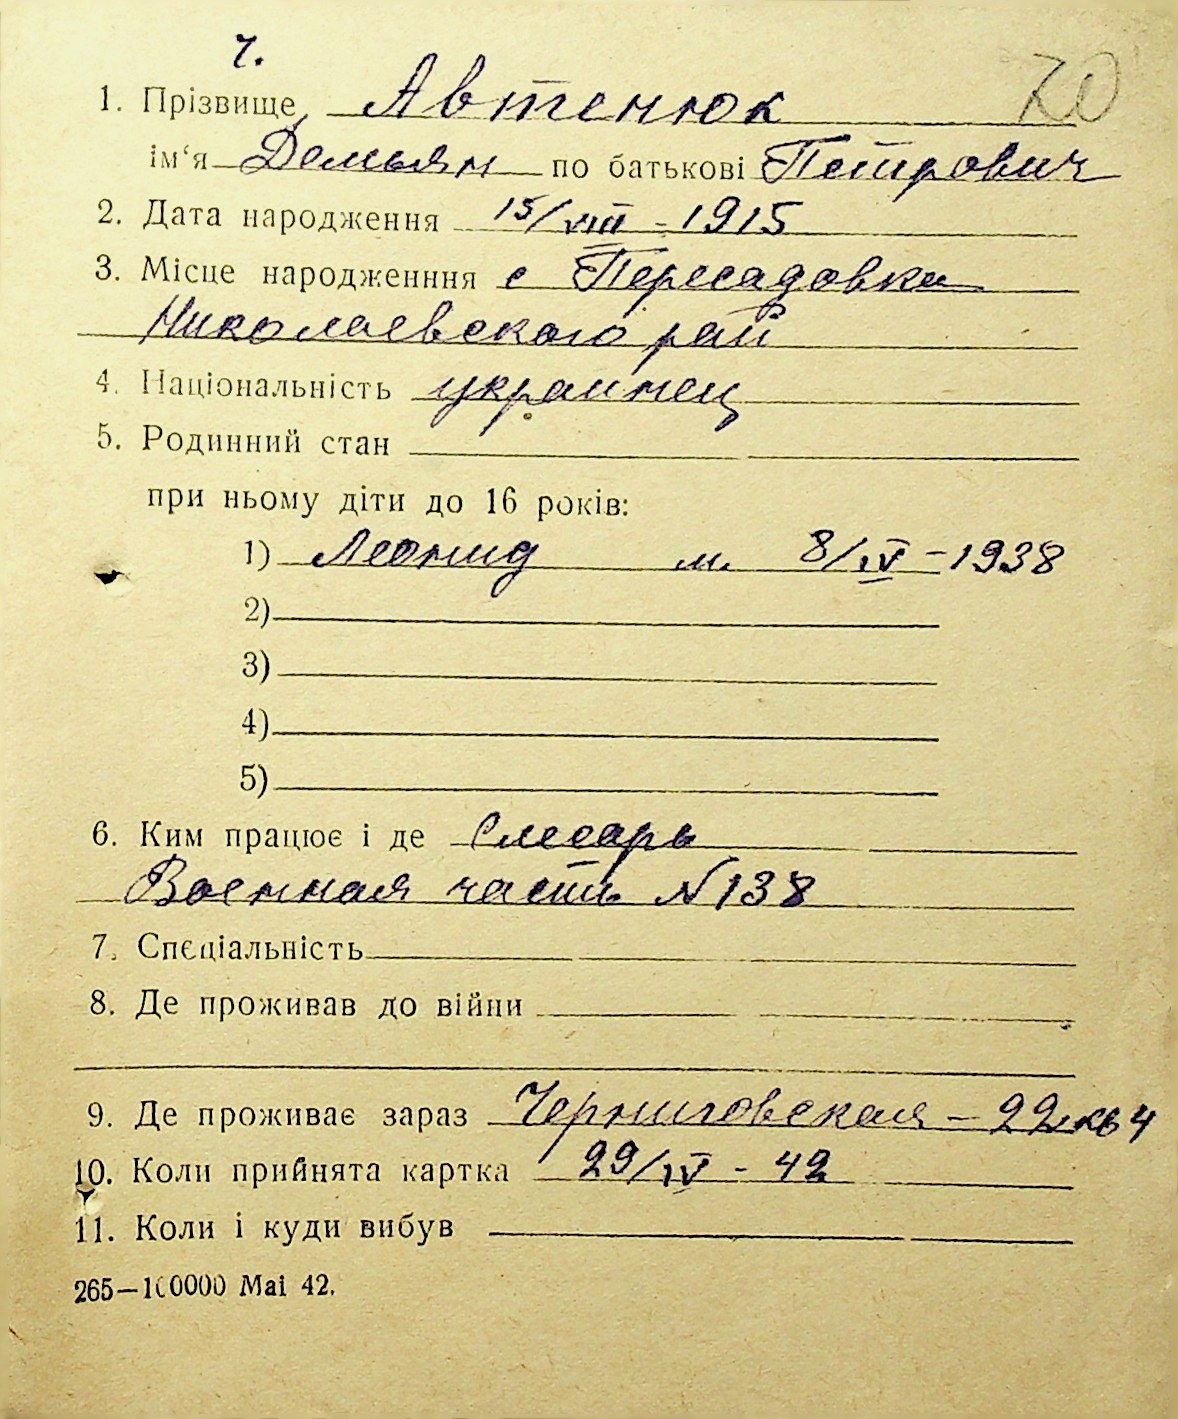 ч.
1. Прізвище Автенюк 20
ім‘я Демьян по батькові Петрович
2. Дата народження 15/VIII - 1915
3. Місце народженння с Пересадовка
Николаевского рай
4. Національність украинец
5. Родинний стан
при ньому діти до 16 років:
1) Леонид м. 8/IV - 1938
2)
3)
4)
5)
6. Ким працює і де Слесарь
Военная часть N 138
7. Спєціальність
8. Де проживав до війни
9. Де проживає зараз Черниговская - 22 кв 4
10. Коли прийнята картка 29/IV - 42
11. Коли і куди вибув
265—100000 Mai 42.